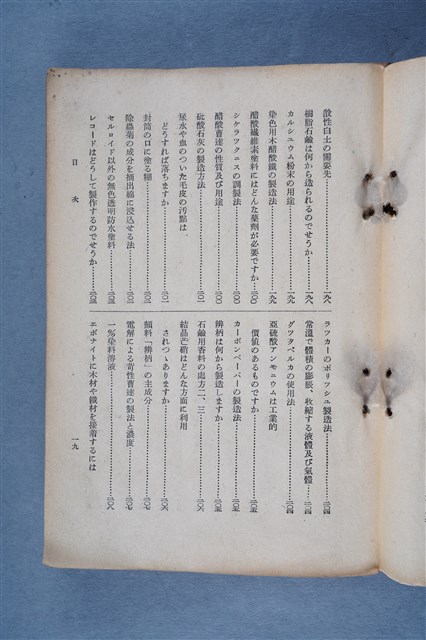 酸性白土の需要先……一九八
樹脂石鹼は何から造られるのでせうか……一九八
カルシユウム粉末の用途……一九九
染色用木醋酸鐵の製造法……一九九
醋酸纖維素塗料にはどんな藥劑が必要ですか……二〇〇
シケラツクニスの調製法……二〇〇
醋酸曹達の性質及び用途……二〇〇
硫酸石灰の製造方法……二〇一
尿水や血のついた毛皮の汚點は
どうすれば落ちますか……二〇一
封筒の口に塗る糊……二〇二
除蟲菊の成分を摘出綿に浸込せる法……二〇三
セルロイド以外の無色透明防水塗料……二〇三
レコードはどうして製作するのでせうか……二〇三
ラツカーのポリツシユ製造法……二〇四
常溫で體積の膨脹、收縮する液體及び氣體……二〇四
グツタペルカの使用法……二〇四
亞硫酸アンモニウムは工業的
價値のあるものですか……二〇五
カーボンペーパーの製造法……二〇五
辨柄は何から製造しますか……二〇五
石鹼用香料の處方二、三……二〇六
結晶芒硝はどんな方面に利用
されつゝありますか……二〇六
顏料「辨柄」の主成分……二〇七
電解による苛性曹達の製法と濃度……二〇七
一%染料溶液……二〇八
エボナイトに木材や鐵材を接着するには
目次
一九